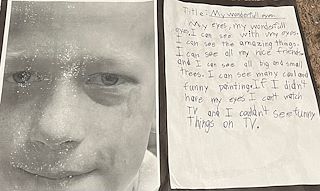 Title: My wonderful eyes.
My eyes, my wonderfull
eyes. I can see with my eyes.
I can see the amazing things.
I can see all my nice friends
and I can see all big and small
trees. I can see many cool and
funny painting. If I didn't
have my eyes I can't watch
TV and I couldn't see funny
Things on TV.